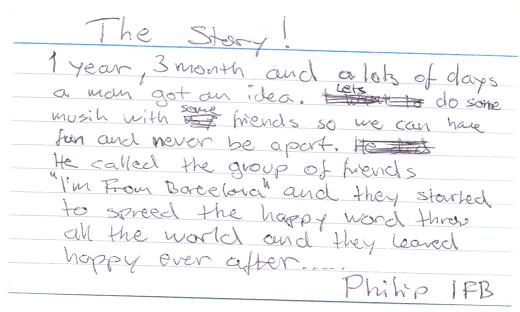 The Story!
1 year, 3 month and a lots of days
a man got an idea. Lets do some
musik with some friends so we can have
fun and never be apart.
He called the group of friends
"I'm From Barcelona" and they started
to spreed the happy word threw
all the world and they leaved
happy ever after.....
Philip IFB